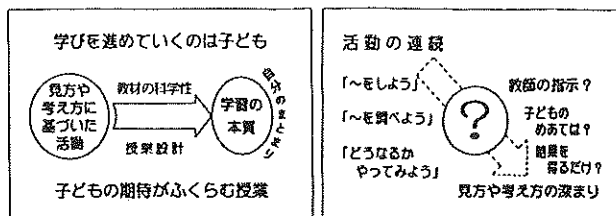 学びを進めていくのは子ども
見方や
考え方に
基づいた
活動
教材の科学性
授業設計
学習の
本質
子どもの期待がふくらむ授業
活動の連続
「〜をしよう」
「〜を調べよう」
「どうなるか
やってみよう」
?
教師の指示?
子どもの
めあては?
結果を
得るだけ?
見方や考え方の深まり